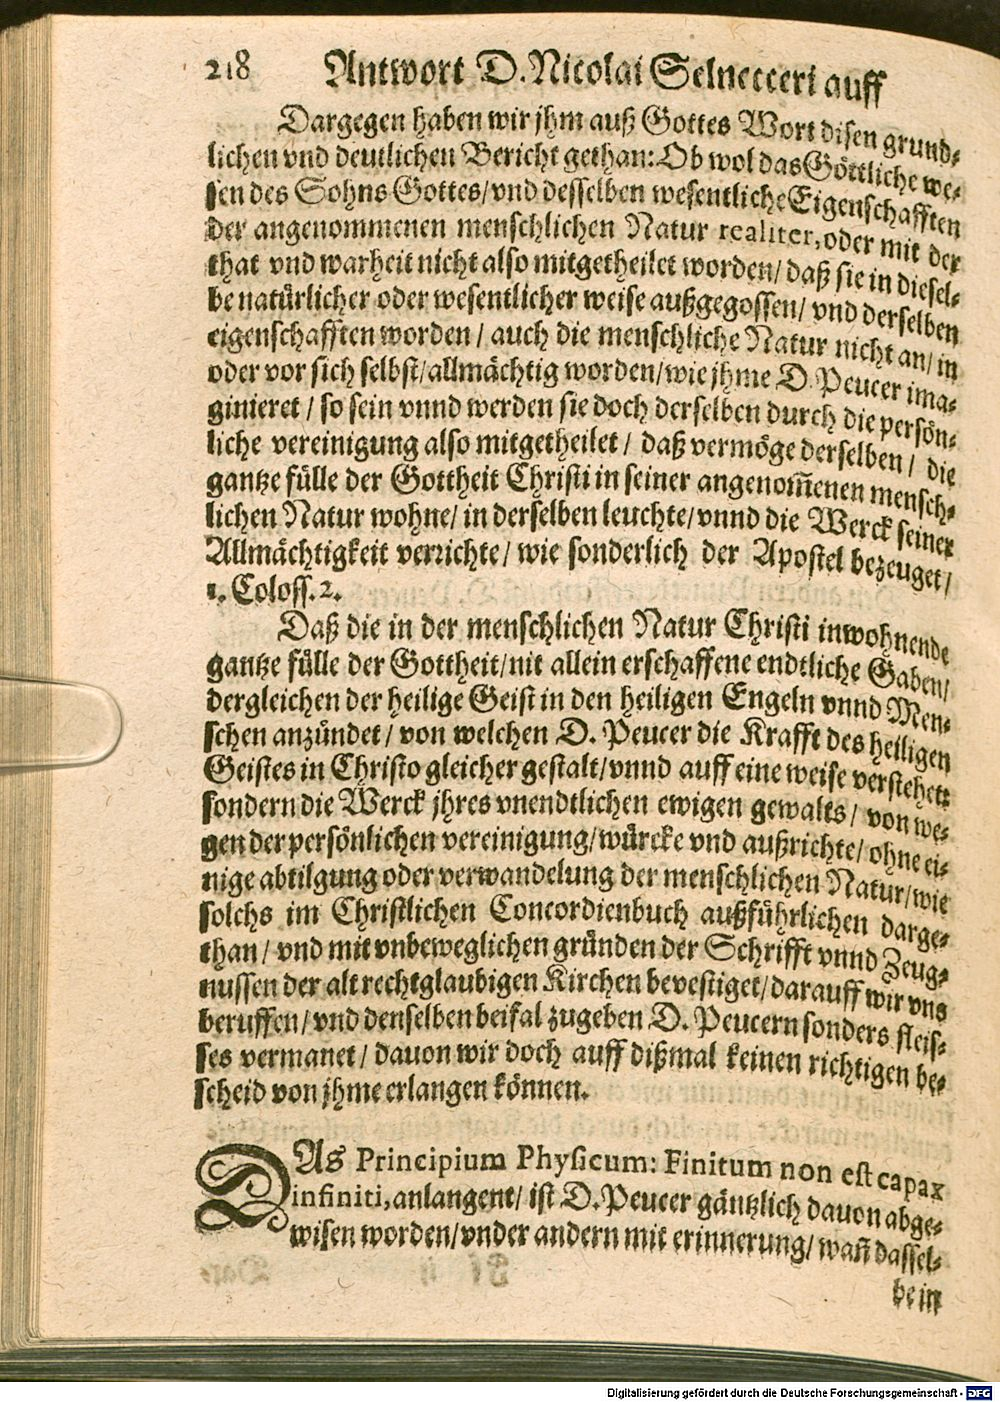 218 Antwort D. Nicolai Selnecceri auff
Dargegen haben wir jhm auß Gottes Wort disen grund-
lichen vnd deutlichen Bericht gethan: Ob wol das Göttliche we-
sen des Sohns Gottes/ vnd desselben wesentliche Eigenschafften
der angenommenen menschlichen Natur realiter, oder mit der
that vnd warheit nicht also mitgetheilet worden/ daß sie in diesel-
be natürlicher oder wesentlicher weise außgegossen/ vnd derselben
eigenschafften worden/ auch die menschliche Natur nicht an/ in
oder vor sich selbst/ allmächtig worden/ wie jhme D. Peucer ima-
ginieret/ so sein vnnd werden sie doch derselben durch die persön-
liche vereinigung also mitgetheilet/ daß vermöge derselben/ die
gantze fülle der Gottheit Christi in seiner angenom̃enen mensch-
lichen Natur wohne/ in derselben leuchte/ vnnd die Werck seiner
Allmächtigkeit verrichte/ wie sonderlich der Apostel bezeuget/
1. Coloss. 2.
Daß die in der menschlichen Natur Christi inwohnende
gantze fülle der Gottheit/ nit allein erschaffene endtliche Gaben/
dergleichen der heilige Geist in den heiligen Engeln vnnd Men-
schen anzündet/ von welchen D. Peucer die Krafft des heiligen
Geistes in Christo gleicher gestalt/ vnnd auff eine weise verstehet:
sondern die Werck jhres vnendtlichen ewigen gewalts/ von we-
gen der persönlichen vereinigung/ würcke vnd außrichte/ ohne ei-
nige abtilgung oder verwandelung der menschlichen Natur/ wie
solchs im Christlichen Concordienbuch außführlichen darge-
than/ vnd mit vnbeweglichen gründen der Schrifft vnnd Zeug-
nussen der alt rechtglaubigen Kirchen bevestiget/ darauff wir vns
beruffen/ vnd denselben beifal zugeben D. Peucern sonders fleis-
ses vermanet/ dauon wir doch auff dißmal keinen richtigen be-
scheid von jhme erlangen können.
DAs Principium Physicum: Finitum non est capax
infiniti, anlangent/ ist D. Peucer gäntzlich dauon abge-
wisen worden/ vnder andern mit erinnerung/ wañ dassel-
be in
Digitalisierung gefördert durch die Deutsche Forschungsgemeinschaft - DFG